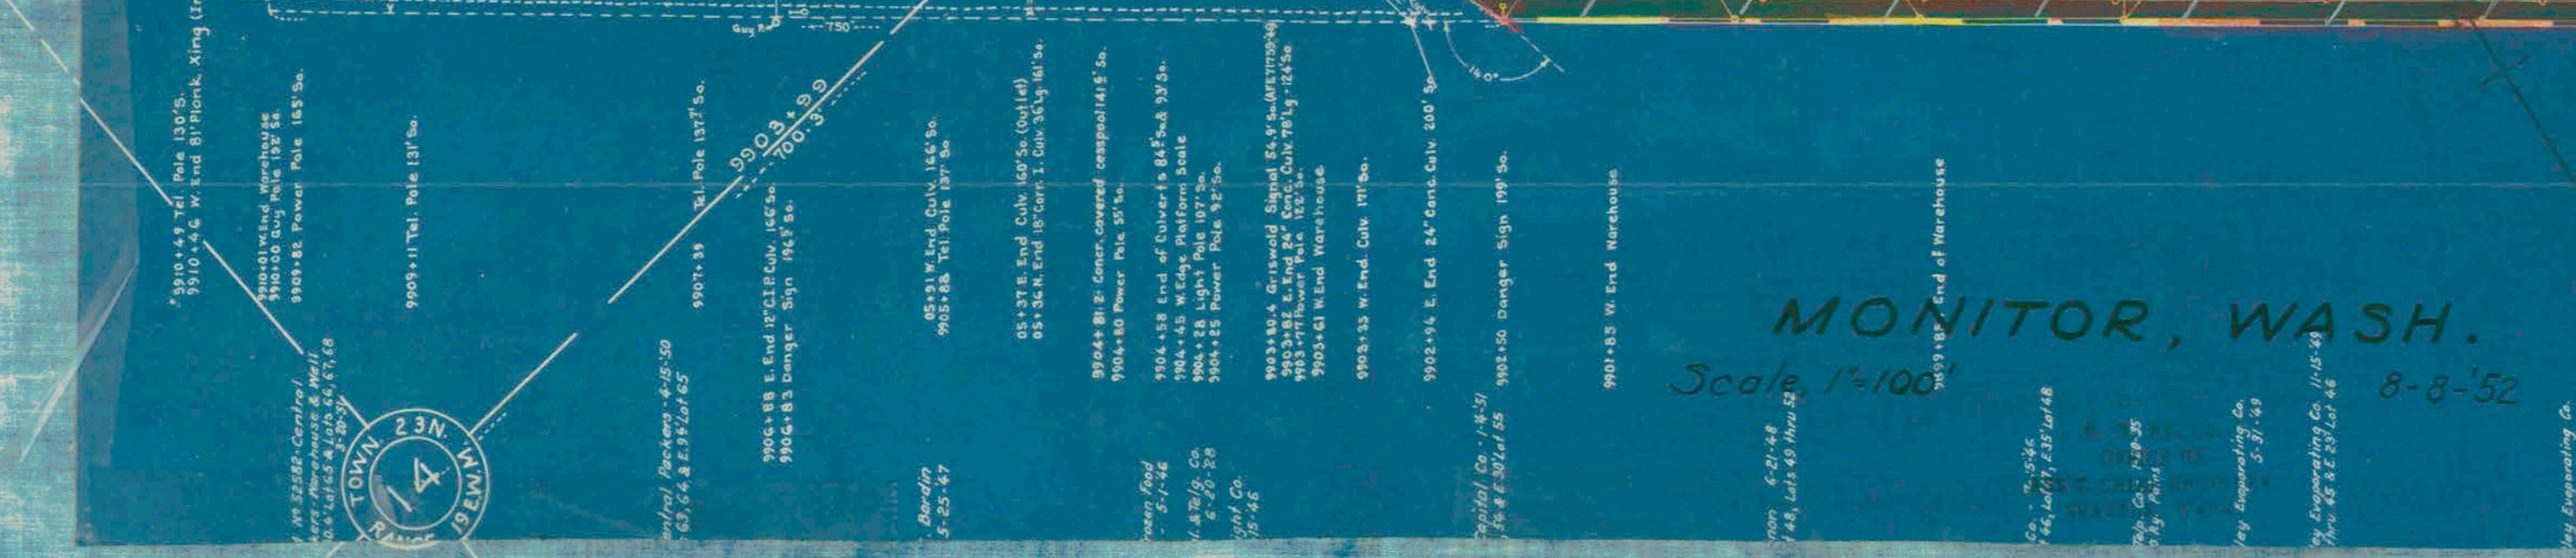 Guy P.
750
140°
9910+49 Tel. Pole 130'S.
9910+46 W. End 81' Plank, Xing
9910+01 W. End Warehouse
9910+00 Guy Pole 192' So.
9909+82 Power Pole 165' So.
9909+11 Tel. Pole 131' So.
9907+39 Tel. Pole 137⁷' So.
9903+99
700.3
9906+88 E. End 12" C.I.P. Culv. 166' So.
9906+83 Danger Sign 196⁵' So.
05+91 W. End Culv. 166' So.
9905+88 Tel. Pole 137' So.
05+37 E. End Culv. 160' So. (Outlet)
05+36 N. End 18" Corr. I. Culv. 36' Lg. 161' So.
9904+81.2 Concr. covered cesspool 141⁵' So.
9904+80 Power Pole 55' So.
9904+58 End of Culverts 84⁵' So. & 93' So.
9904+45 W. Edge Platform Scale
9904+28 Light Pole 107' So.
9904+25 Power Pole 92' So.
9903+80.4 Griswold Signal 54.9' So.
9903+82 E. End 24" Conc. Culv. 78' Lg - 124' So.
9903+77 Power Pole 122' So.
9903+61 W. End Warehouse
9903+35 W. End. Culv. 171' So.
9902+94 E. End 24" Conc. Culv. 200' So.
9902+50 Danger Sign 199' So.
9901+85 W. End Warehouse
End of Warehouse
MONITOR, WASH.
Scale, 1"=100'
8-8-'52
Nº 52582-Central
Warehouse & Well
Lot 65 & Lots 66, 67, 68
TOWN. 23N.
14
RANGE 19 E.W.M.
Packers - 4-15-50
63, 64, & E. 94' Lot 65
Bardin
5-25-47
Food
5-1-46
& Telg. Co.
6-20-28
Co.
15-46
Capital Co. - 1-4-51
Lot 55
6-21-48
48, Lots 49 thru 52
Co.
46, Lot 47, E 35' Lot 48
Evaporating Co.
5-31-49
Evaporating Co. 11-15-49
thru 45 & E. 23' Lot 46
Evaporating Co.